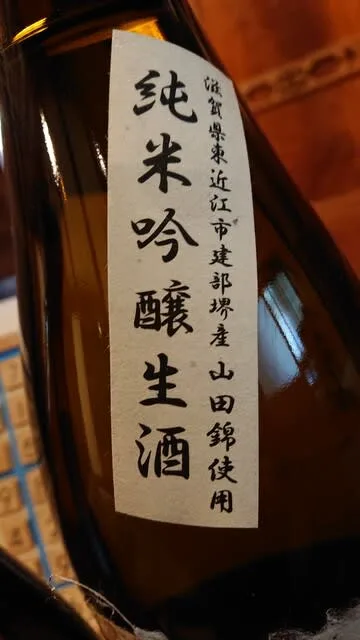 滋賀県東近江市建部堺産山田錦使用
純米吟醸生酒